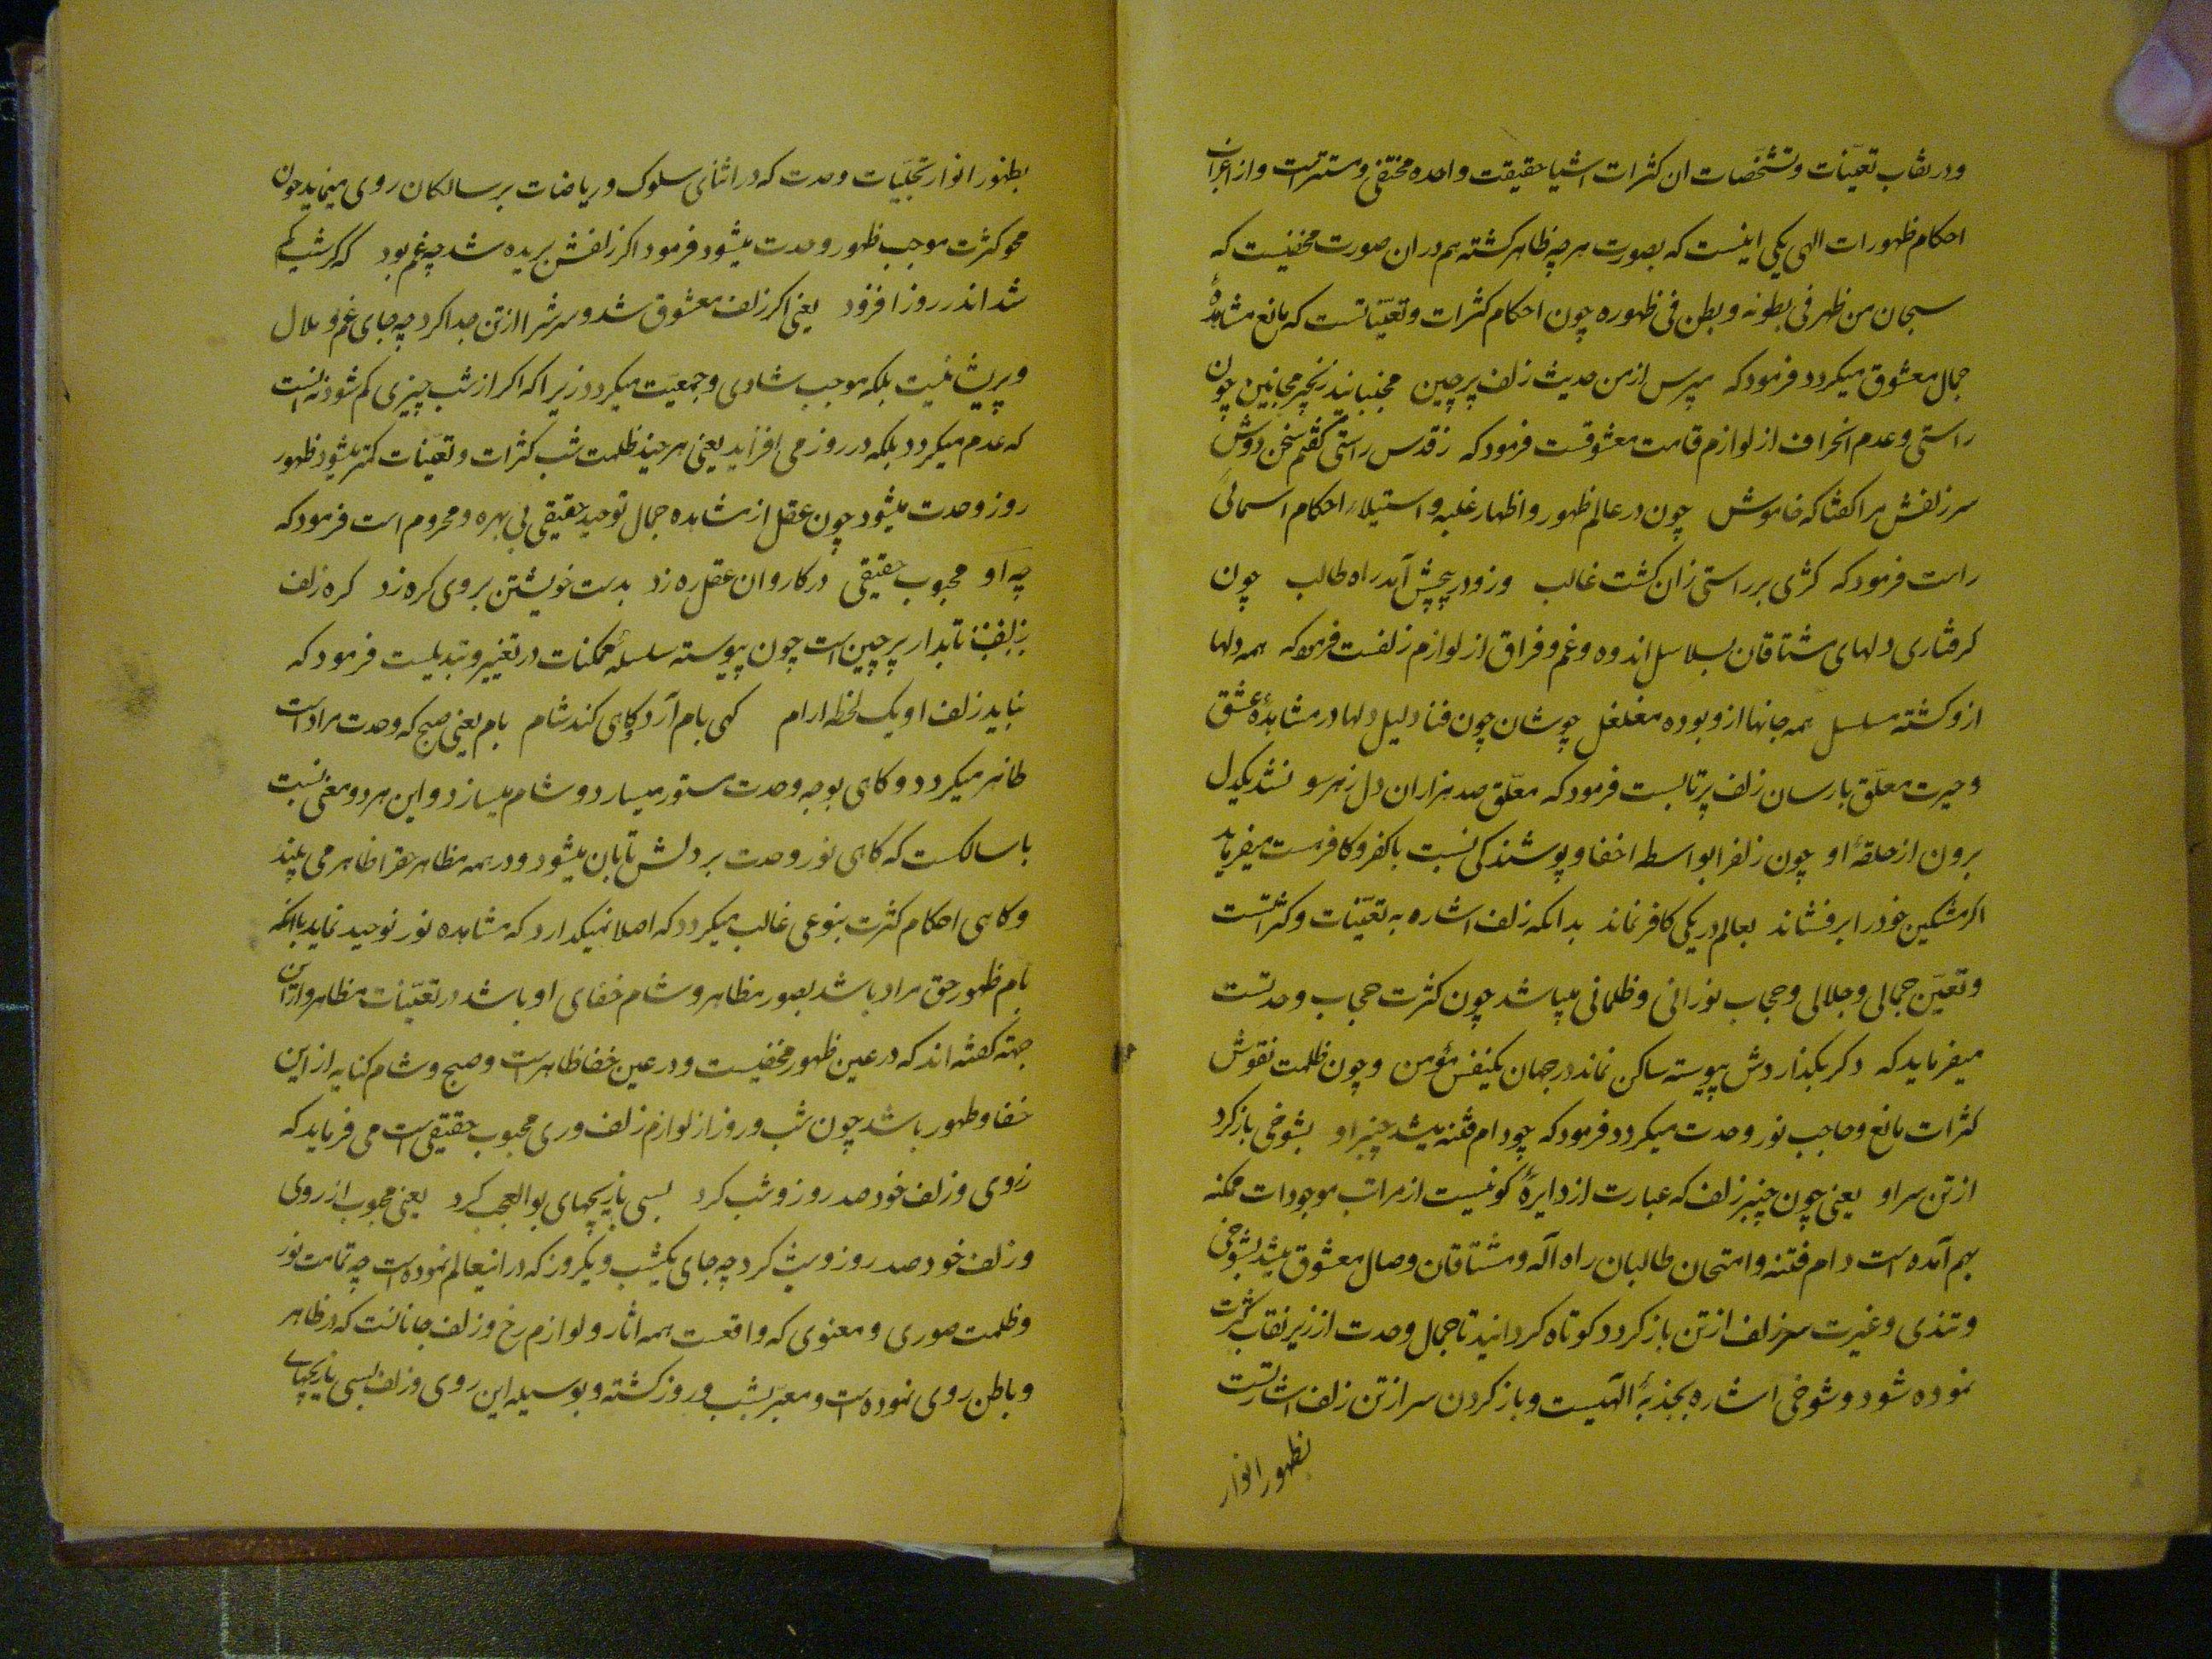 ودر نقاب تعینات وتشخصات ان کثرات اشیا حقیقت واحده مختفی ومستترست واز اعزاب
احکام ظهورات الهی یکی اینست که بصورت هرچه ظاهر کشته هم دران صورت مخفیست که
سبحان من ظهر فی بطونه وبطن فی ظهوره چون احکام کثرات وتعیناتست که مانع مشاهدهٔ
جمال معشوق میکردد فرمود که مپرس ازمن حدیث زلف پرچین مجنبانید زنجیر مجانین چون
راستی وعدم انحراف از لوازم قامت معشوقست فرمود که زقدس راستی کفتم سخن دوش
سرزلفش مرا کفتا که خاموش چون درعالم ظهور واظهار غلبه واستیلاء احکام اسمائی
راست فرمود که کژی بر راستی زان کشت غالب وزو درپیچش آمد راه طالب چون
کرفتاری دلهای مشتاقان بسلاسل اندوه وغم وفراق از لوازم زلفست فرمود که همه دلها
ازو کشته مسلسل همه جانها ازو بوده مغلغل چوشان چون قنادیل دلها در مشاهدهٔ عشق
وحیرت معلّق بارسان زلف پرتابست فرمود که معلّق صد هزاران دل زهر سو نشد یکدل
برون از حلقهٔ او چون زلفرا بواسطه اخفا وپوشندکی نسبت باکفر وکافرست میفرماید
اکر مشکین خود را برفشاند بعالم در یکی کافر نماند بدانکه زلف اشاره به تعیّنات وکثراتست
وتعیّن جمالی وجلالی وحجاب نورانی وظلمانی میباشد چون کثرت حجاب وحدتست
میفرماید که دکر بکذاردش پیوسته ساکن نماند درجهان یکنفس مؤمن وچون ظلمت نقوش
کثرات مانع وحاجب نور وحدت میکردد فرمود که چودام فتنه میشد چنبر او بشوخی باز کرد
ازتن سر او یعنی چون چنبر زلف که عبارت از دایرهٔ کونیست از مراتب موجودات ممکنه
بهم آمده است دام فتنه وامتحان طالبان راه آله ومشتاقان وصال معشوق میشد بشوخی
وتندی وغیرت سرزلف ازتن باز کرد و کوتاه کردانید تا جمال وحدت از زیر نقاب کثرت
نموده شود وشوخی اشاره بجذبهٔ الهیست وباز کردن سر ازتن زلف اشارتست
بظهور انوار
بظهور انوار تجلّیات وحدت که در اثنای سلوک وریاضات برسالکان روی مینماید چون
محو کثرت موجب ظهور وحدت میشود فرمود اکر زلفش بریده شد چه غم بود که کر شب کم
شد اندر روز افزود یعنی اکر زلف معشوق شد وسرشرا ازتن جدا کرد چه جای غم وملال
وپریش نیست بلکه موجب شادی وجمعیّت میکردد زیرا که اکر از شب چیزی کم شود نه انست
که عدم میکردد بلکه در روز می افزاید یعنی هرچند ظلمت شب کثرات وتعیّنات کمتر میشود ظهور
روز وحدت میشود چون عقل از مشاهده جمال توحید حقیقی بی بهره ومحروم است فرمود که
چه او محبوب حقیقی درکاروان عقل ره زد بدست خویشتن بروی کره زد کره زلف
بزلف تابدار پرچین است چون پیوسته سلسلهٔ ممکنات در تغییر وتبدیلست فرمود که
نیابد زلف او یک لحظه ارام کهی بام آرد کاهی کند شام بام یعنی صبح که وحدت مراد است
ظاهر میکردد وکاهی بوجه وحدت مستور میسازد وشام میسازد واین هردو معنی نسبت
باسالکست که کاهی نور وحدت بردلش تابان میشود ودر همه مظاهر حقرا ظاهر می بیند
وکاهی احکام کثرت بنوعی غالب میکردد که اصلا نمیکذارد که مشاهده نور توحید نماید یاانکه
بام ظهور حق مراد باشد بصور مظاهر وشام خفای او باشد در تعیّنات مظاهر وازاین
جهته کفته اند که درعین ظهور مخفیست ودرعین خفا ظاهرست وصبح وشام کنایه ازاین
خفا وظهور باشد چون شب وروز از لوازم زلف وروی محبوب حقیقی است می فرماید که
زروی وزلف خود صد روز وشب کرد بسی بازیچهای بوالعجب کرد یعنی محبوب از روی
وزلف خود صد روز وشب کرد چه جای یکشب ویکروز که در انیعالم نموده است چه تمامت نور
وظلمت صوری ومعنوی که واقعست همه اثار ولوازم رخ وزلف جانانست که درظاهر
وباطن روی نموده است ومعبّر بشب وروز کشته وبوسیله این روی وزلف بسی بازیچهای